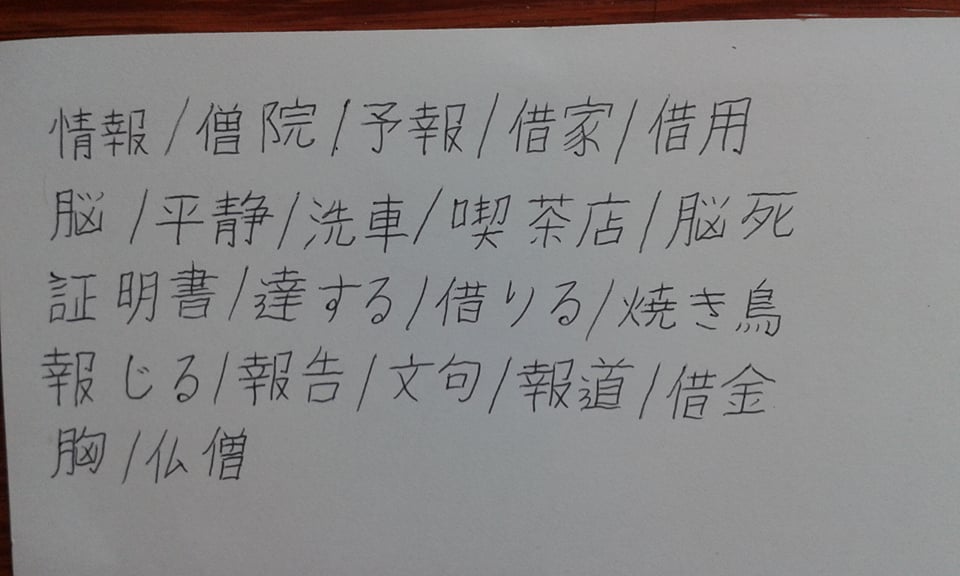 情報/僧院/予報/借家/借用
脳/平静/洗車/喫茶店/脳死
証明書/達する/借りる/焼き鳥
報じる/報告/文句/報道/借金
胸/仏僧